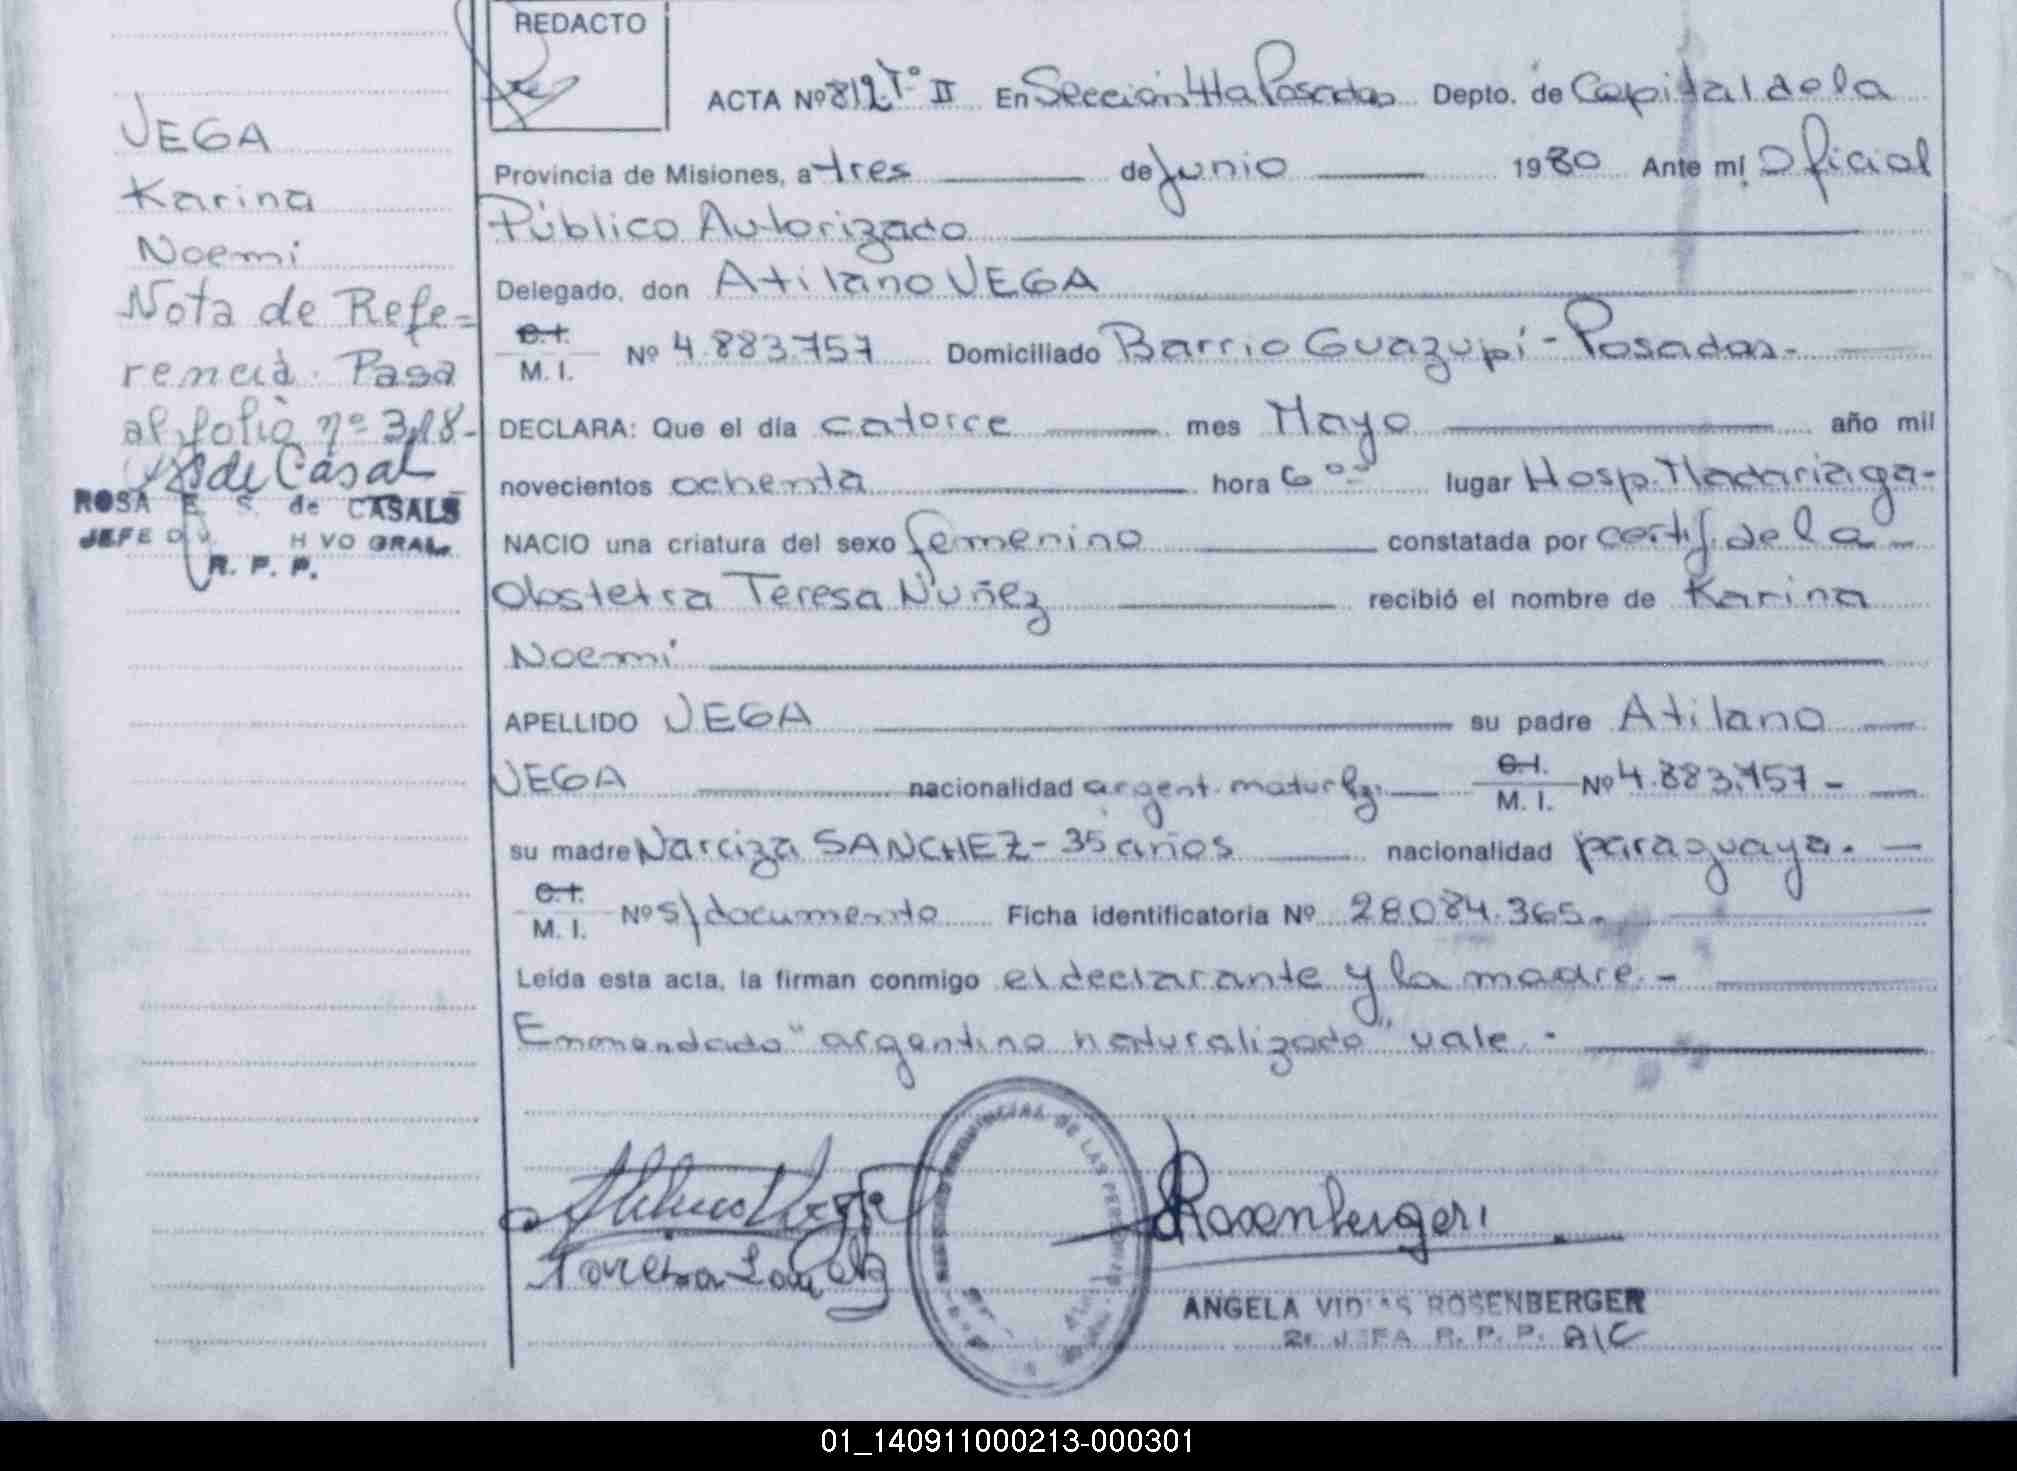 REDACTO
ACTA Nº 812 Tº II En Sección 4ta Posadas Depto. de Capital de la
Provincia de Misiones, a tres de Junio 1980 Ante mí, Oficial
Público Autorizado
Delegado, don Atilano VEGA
C.I.
M. I. Nº 4.883.757 Domiciliado Barrio Guazupí - Posadas.-
DECLARA: Que el día catorce mes Mayo año mil
novecientos ochenta hora 6 ºº lugar Hosp. Madariaga-
NACIO una criatura del sexo femenino constatada por certif. de la
Obstetra Teresa Nuñez recibió el nombre de Karina
Noemi
APELLIDO VEGA su padre Atilano
VEGA nacionalidad argent. C.I.
M. I. Nº 4.883.757 -
su madre Narciza SANCHEZ - 35 años nacionalidad paraguaya. -
C.I.
M. I. Nº s/documento Ficha identificatoria Nº 28.084.365.-
Leída esta acta, la firman conmigo el declarante y la madre.-
Enmendado "argentino naturalizado" vale.-
VEGA
Karina
Noemi
Nota de Refe=
rencia. Pasa
al folio nº 318-
de Casal
ROSA E. S. de CASALS
JEFE H VO GRAL.
R. P. P.
DE LAS
Rosenberger
ANGELA ROSENBERGER
JEFA R. P. P. A/C
01_140911000213-000301